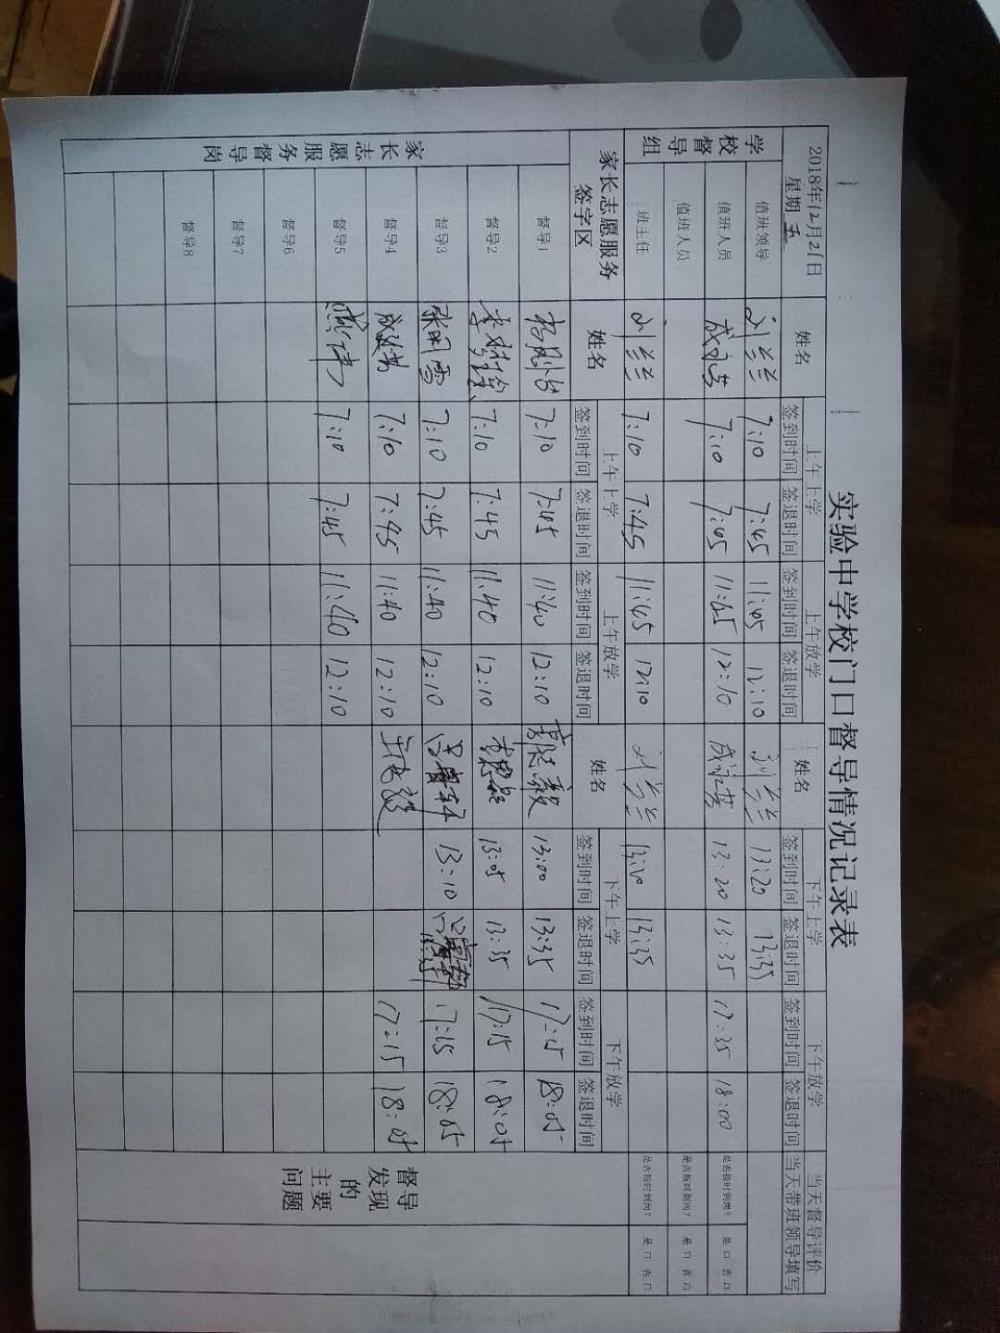 实验中学校门口督导情况记录表
2018年12月21日 星期五 姓名 上午上学 上午放学 姓名 下午上学 下午放学 当天督导评价
签到时间 签退时间 签到时间 签退时间 签到时间 签退时间 签到时间 签退时间 当天带班领导填写
学校督导组
值班领导 刘兰兰 7:10 7:45 11:45 12:10 刘兰兰 13:20 13:35
值班人员 7:10 7:45 11:45 12:10 13:20 13:35 17:35 18:00 是否按时到岗? 是口 否口
值班人员 是否按时到岗? 是口 否口
班主任 刘兰兰 7:10 7:45 11:45 12:10 刘兰兰 13:35 是否按时到岗? 是口 否口
家长志愿服务 姓名 上午上学 上午放学 姓名 下午上学 下午放学
签字区 签到时间 签退时间 签到时间 签退时间 签到时间 签退时间 签到时间 签退时间
家长志愿服务督导岗
督导1 7:10 7:45 11:40 12:10 13:00 13:35 18:05
督导2 7:10 7:45 11:40 12:10 13:05 13:35 17:15 18:05
督导3 张明雪 7:10 7:45 11:40 12:10 13:10 17:15 18:05
督导4 7:10 7:45 11:40 12:10 17:15 18:05
督导5 7:10 7:45 11:40 12:10
督导6
督导7
督导8
督导
发现
的
主要
问题